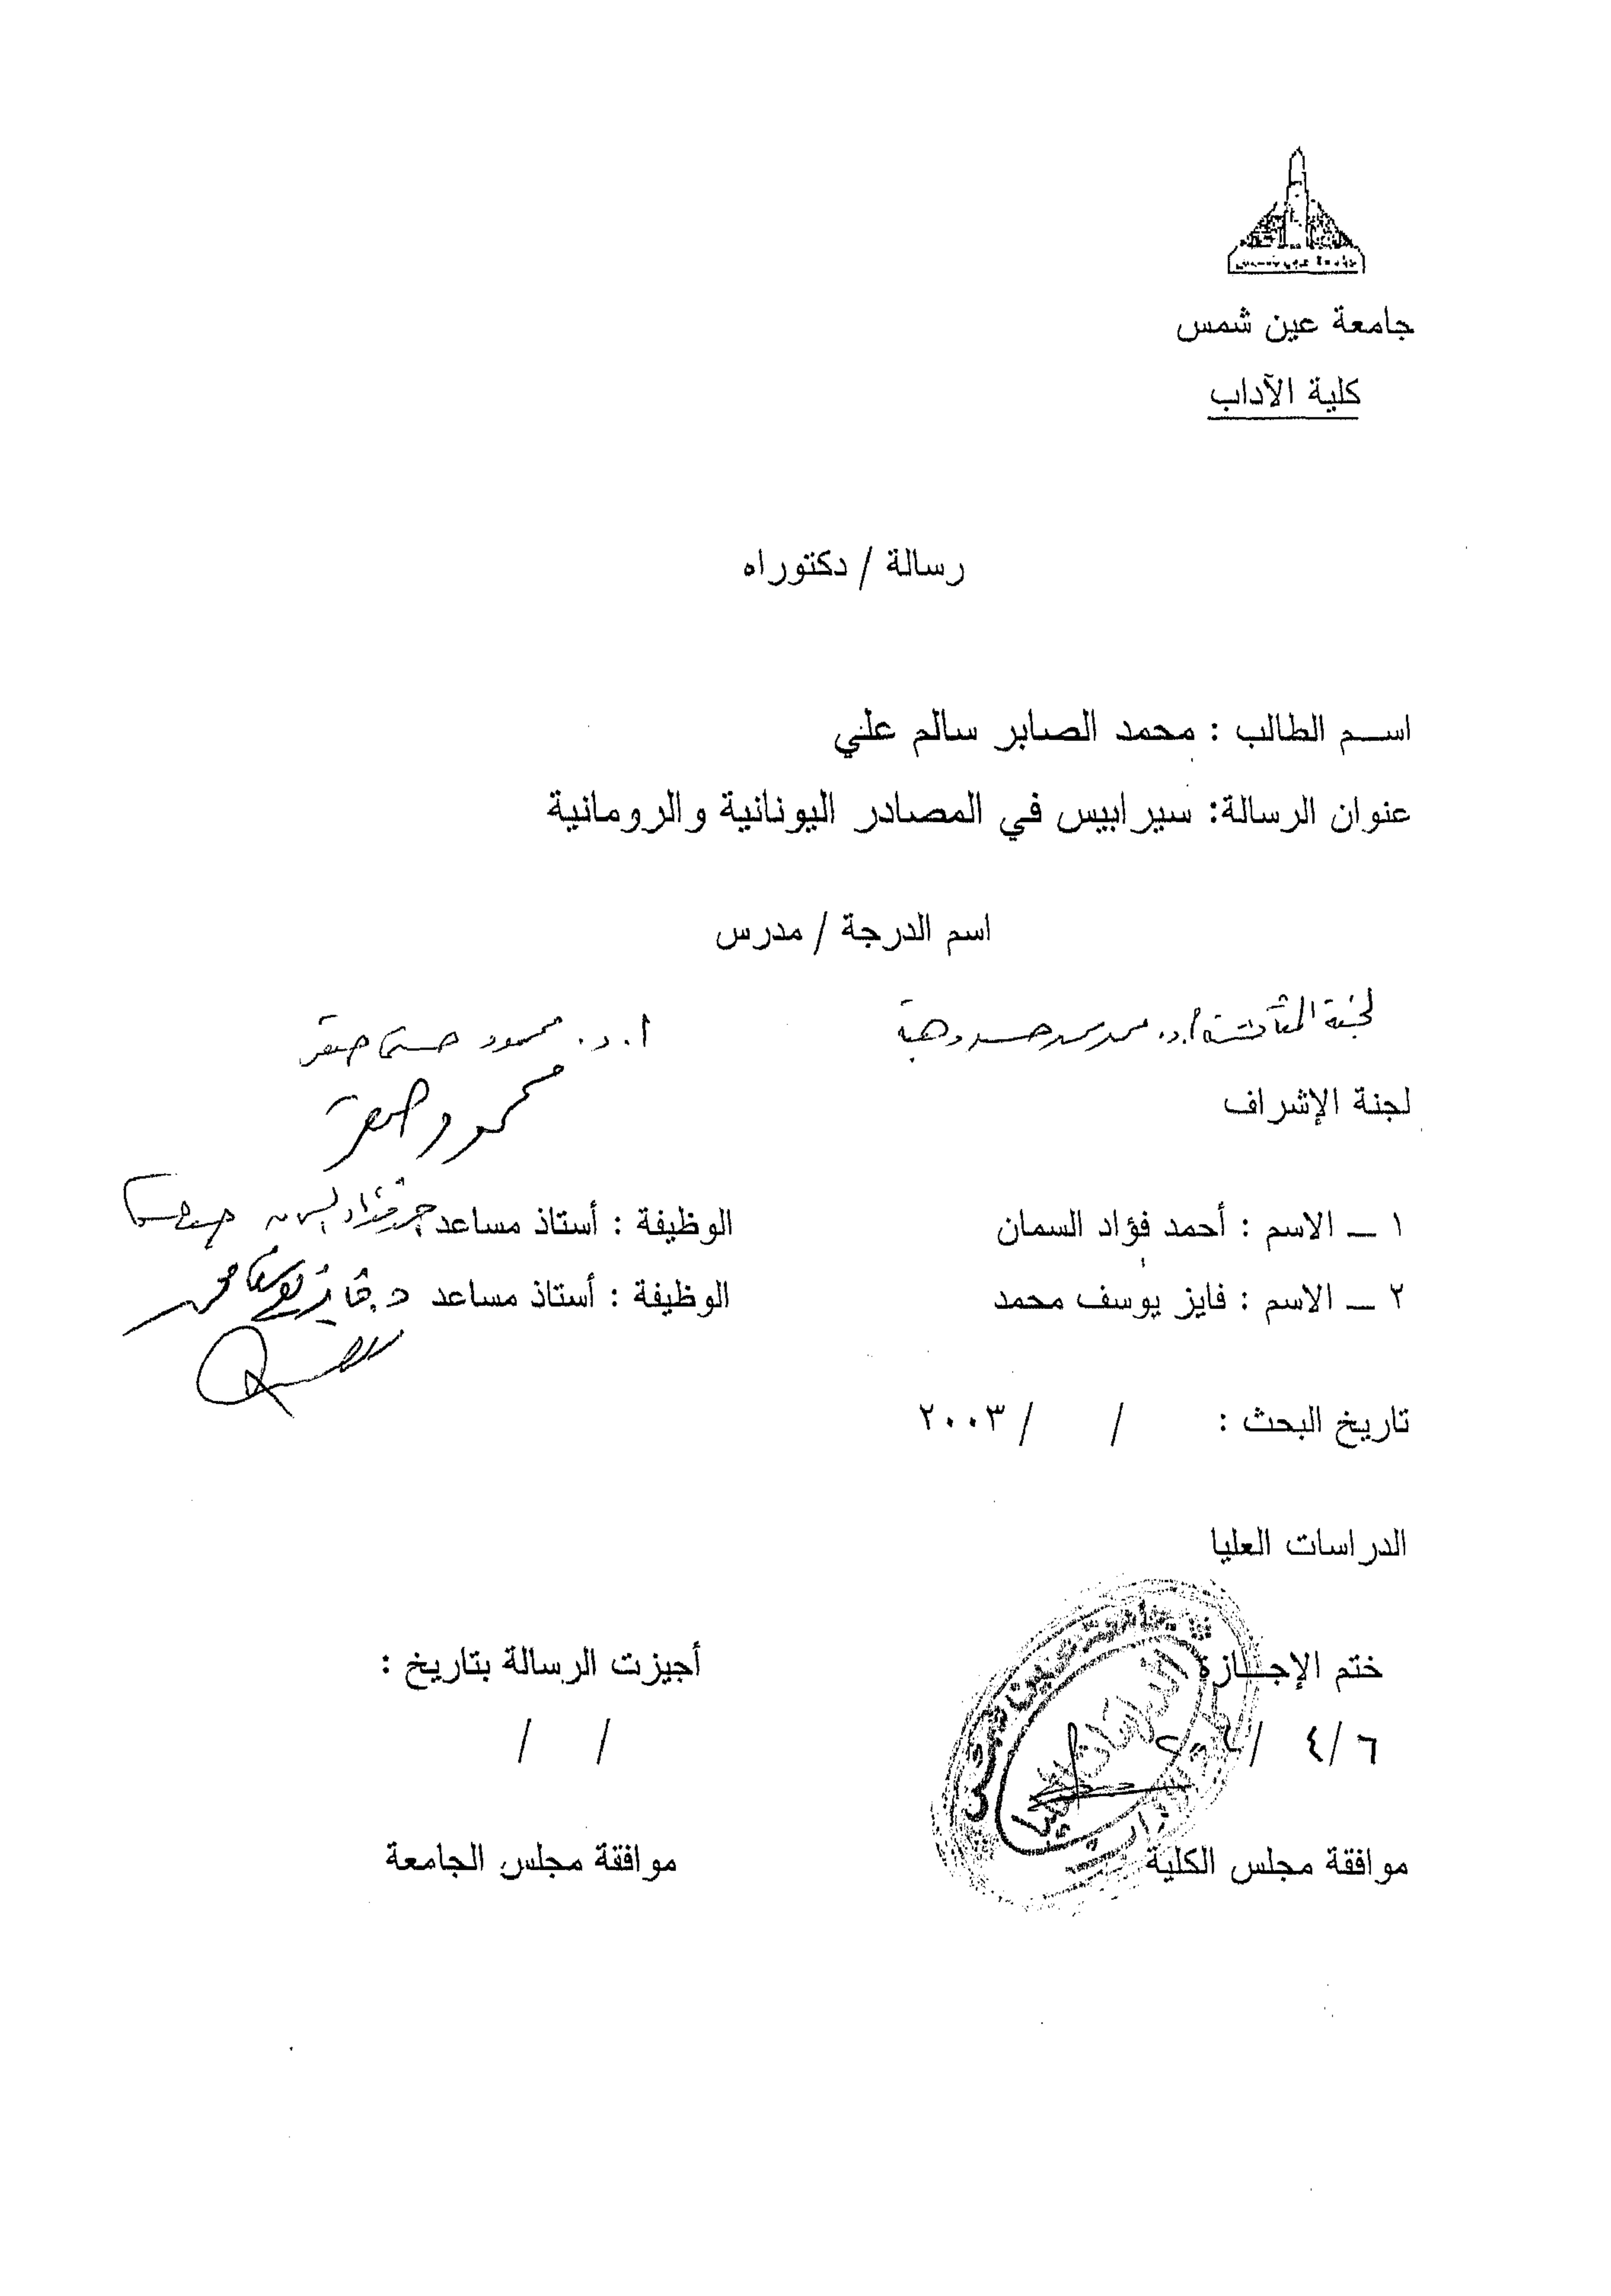 جامعة عين شمس
كلية الآداب
رسالة / دكتوراه
اسم الطالب : محمد الصابر سالم علي
عنوان الرسالة: سيرابيس في المصادر اليونانية والرومانية
اسم الدرجة / مدرس
لجنة المناقشة أ.د. محمد محمد حسن وهبة ا.د. محمود حسني صقر
محمود صقر
لجنة الإشراف
١ ــ الاسم : أحمد فؤاد السمان الوظيفة : أستاذ مساعد
٢ ــ الاسم : فايز يوسف محمد الوظيفة : أستاذ مساعد د. فايز يوسف محمد
تاريخ البحث : / / ٢٠٠٣
الدراسات العليا
ختم الإجازة أجيزت الرسالة بتاريخ :
٦/ ٤ / / /
موافقة مجلس الكلية موافقة مجلس الجامعة